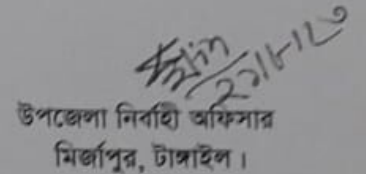 উপজেলা নির্বাহী অফিসার
মির্জাপুর, টাঙ্গাইল।